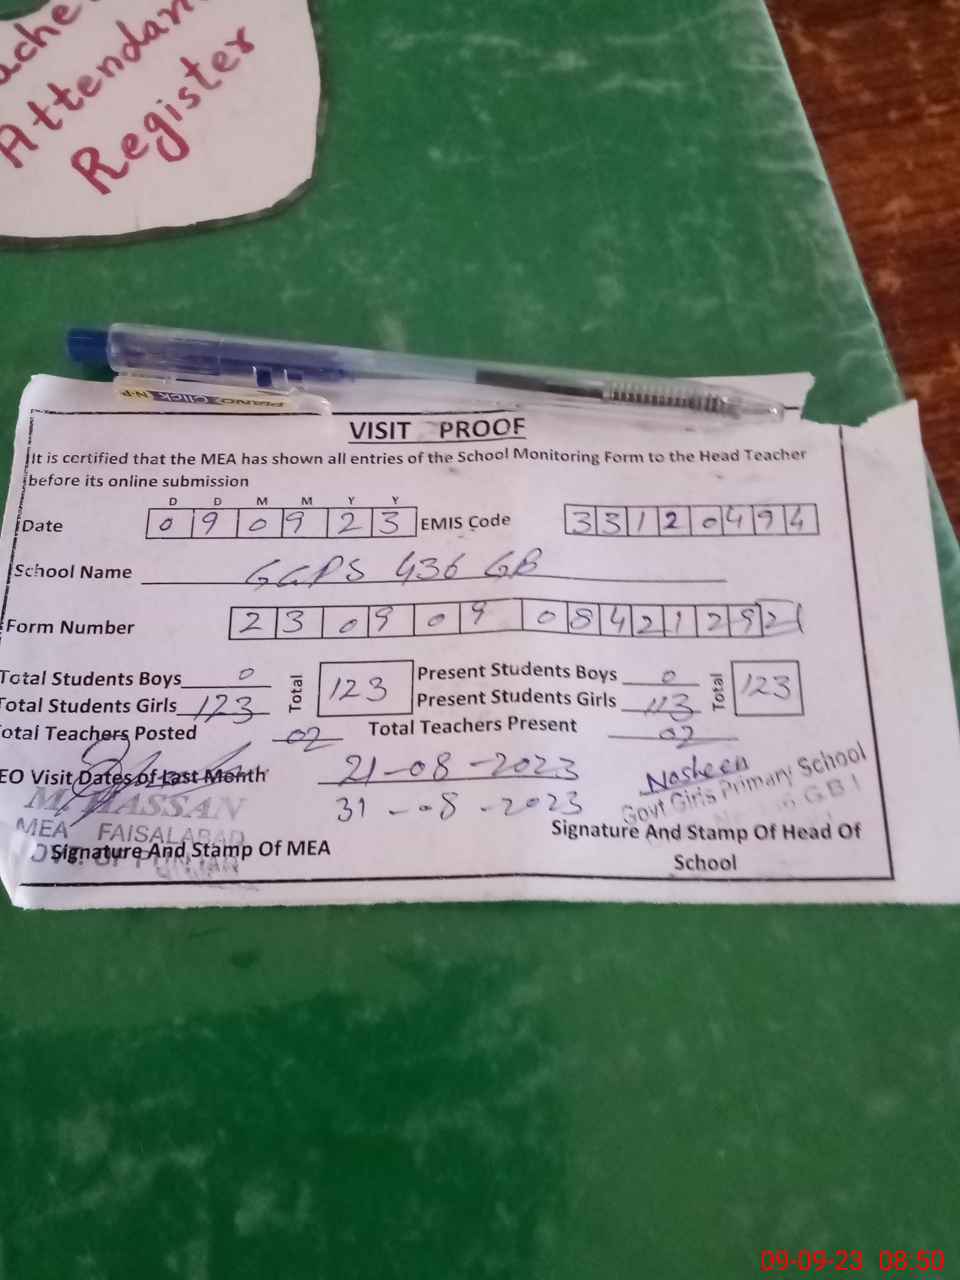 Attendan
Register
PIANO Click N-P
VISIT PROOF
It is certified that the MEA has shown all entries of the School Monitoring Form to the Head Teacher
before its online submission
D D M M Y Y
Date 0 9 0 9 2 3 EMIS Code 3 3 1 2 0 4 9 4
School Name GGPS 436 GB
Form Number 2 3 0 9 0 9 0 8 4 2 1 2 9 2
Total Students Boys 0 Total 123 Present Students Boys 0 Total 123
Total Students Girls 123 Present Students Girls 113
Total Teachers Posted 02 Total Teachers Present 02
EO Visit Dates of Last Month 21-08-2023
31-08-2023
Nosheen
Govt Girls Primary School
GB
HASSAN
MEA FAISALABAD
Signature And Stamp Of MEA
Signature And Stamp Of Head Of
School
09-09-23 08.50